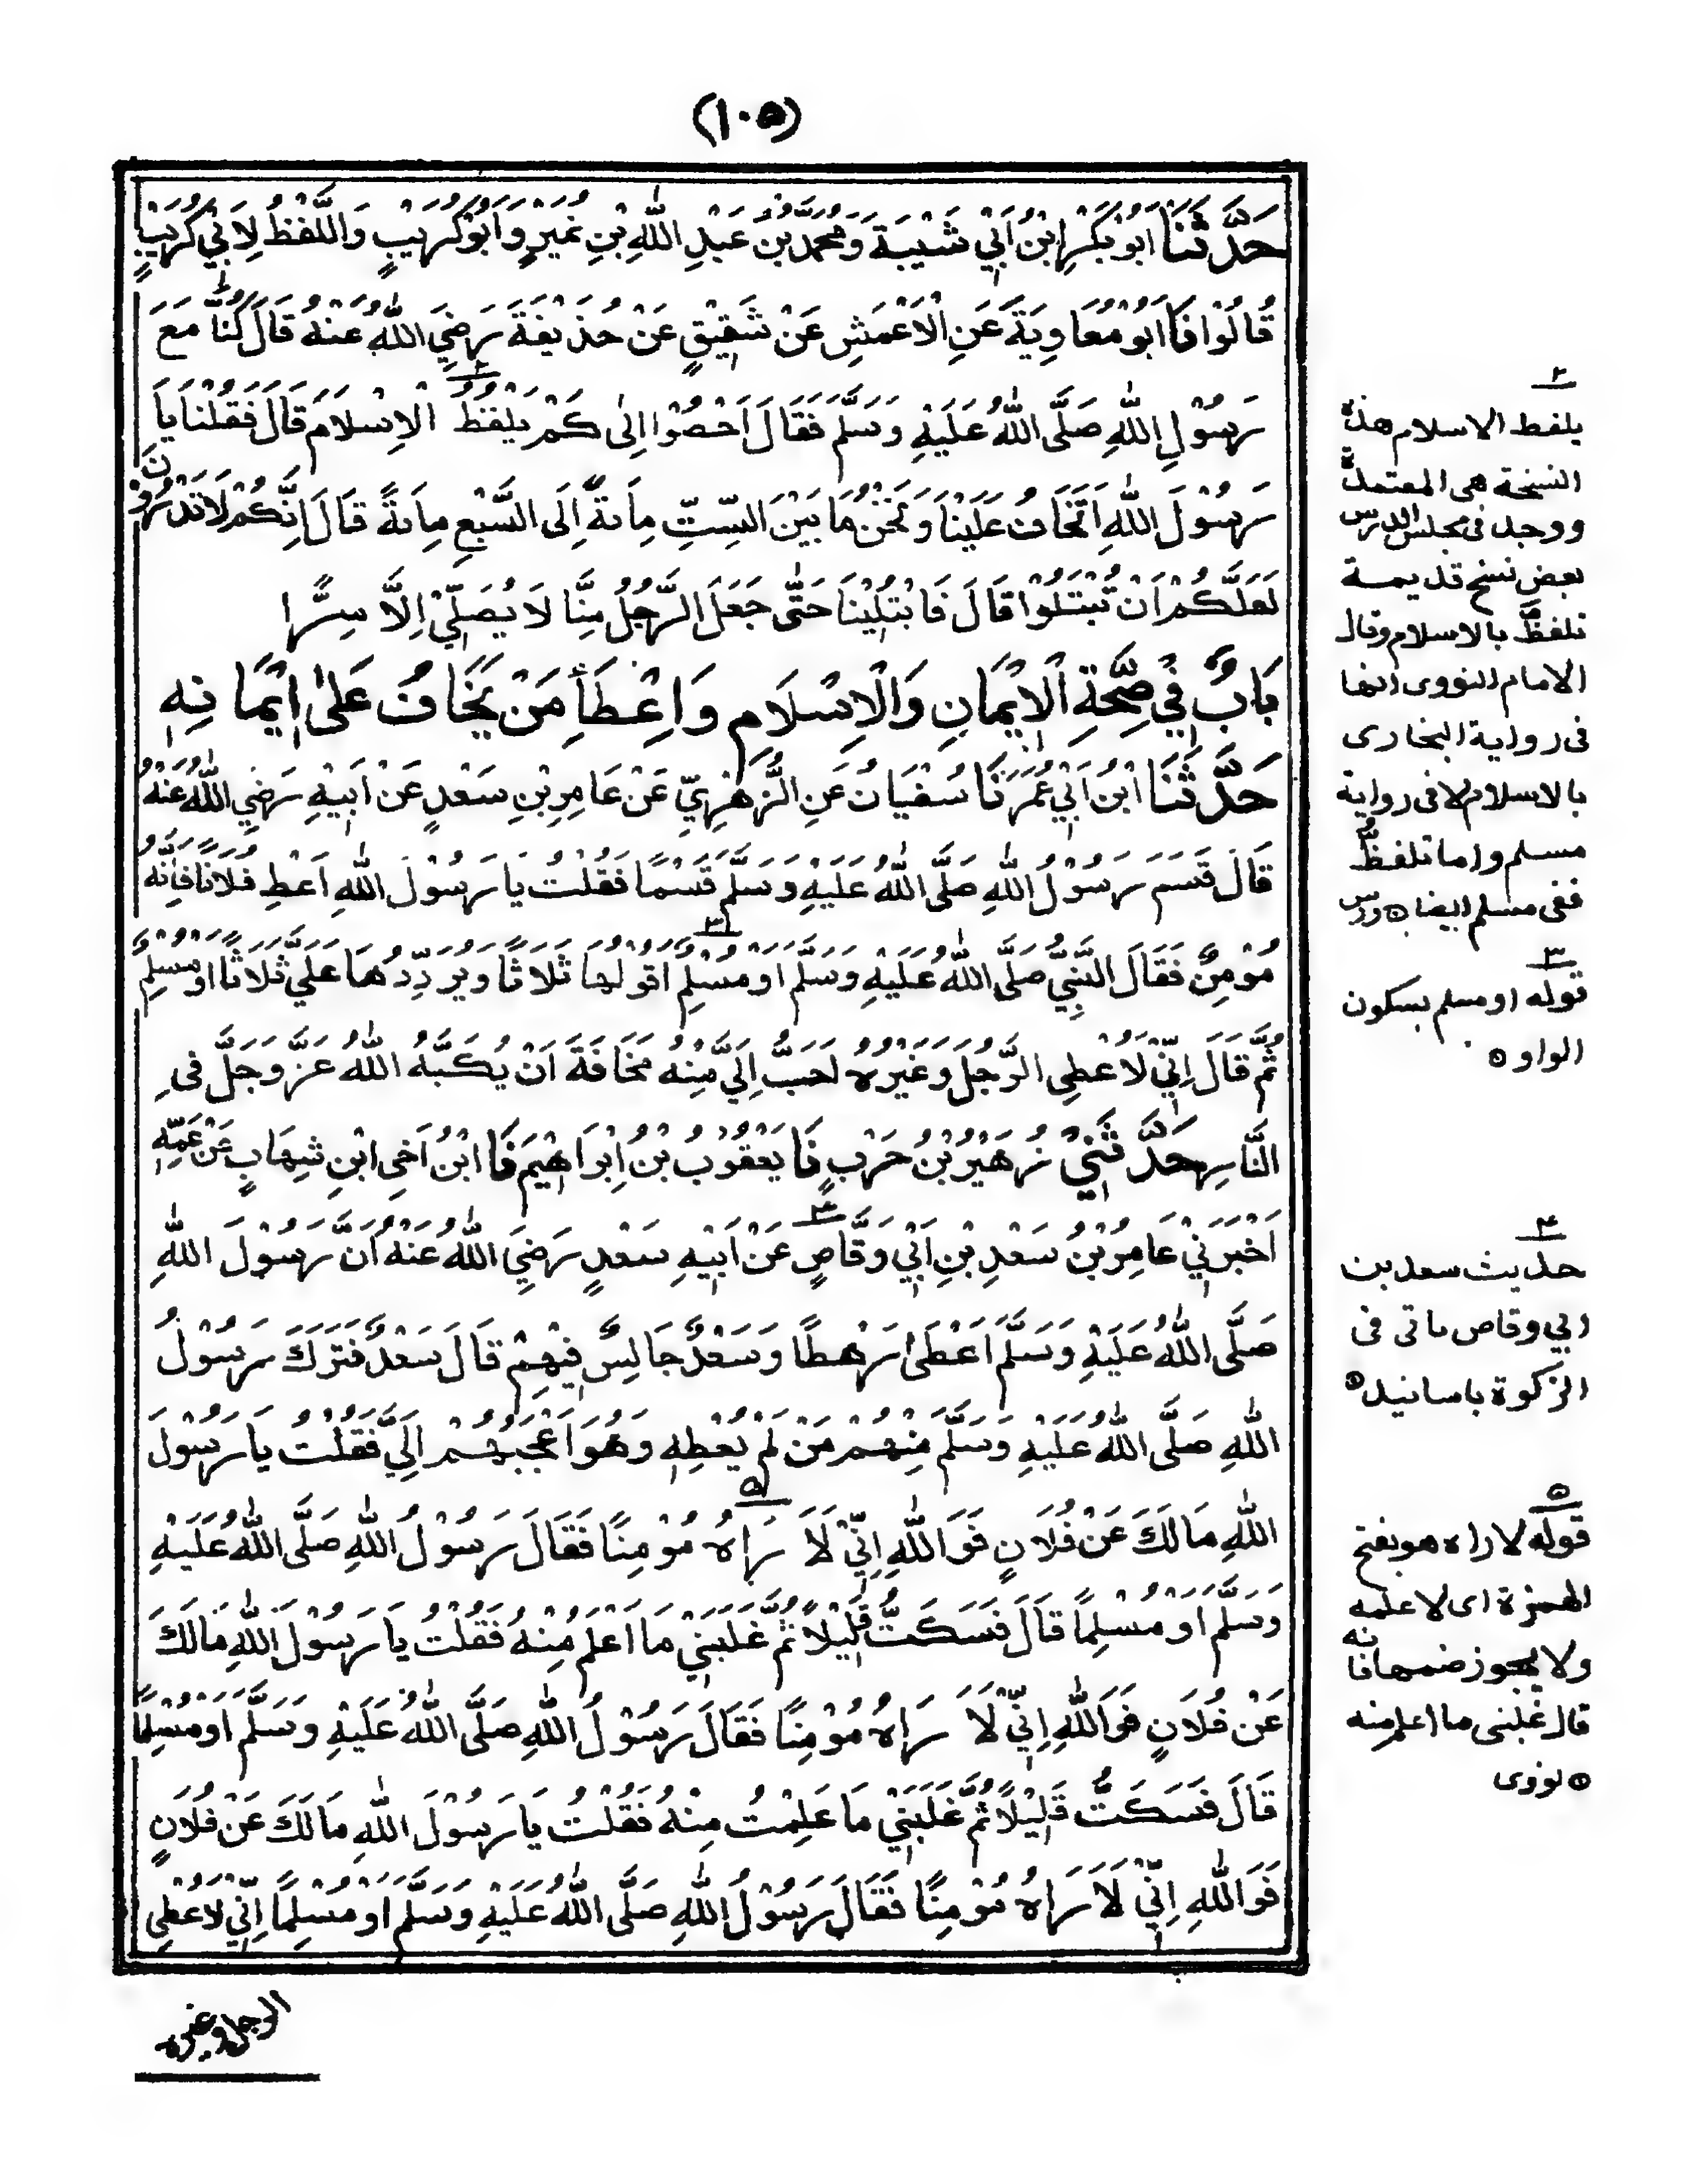 (١٠٥)
حَدَّثَنَا اَبُوْ بَكْرِ ابْنُ اَبِيْ شَيْبَةَ وَمُحَمَّدُ بْنُ عَبْدِ اللّٰهِ بْنِ نُمَيْرٍ وَاَبُوْ كُرَيْبٍ وَاللَّفْظُ لِاَبِيْ كُرَيْبٍ
قَالُوْا نَا اَبُوْ مُعَاوِيَةَ عَنِ الْاَعْمَشِ عَنْ شَقِيْقٍ عَنْ حُذَيْفَةَ رَضِيَ اللّٰهُ عَنْهُ قَالَ كُنَّا مَعَ
رَسُوْلِ اللّٰهِ صَلَّى اللّٰهُ عَلَيْهِ وَسَلَّمَ فَقَالَ اَحْصُوْا اِلٰى كَمْ يَلْفِظُ الْاِسْلَامَ قَالَ فَقُلْنَا يَا
رَسُوْلَ اللّٰهِ اَتَخَافُ عَلَيْنَا وَنَحْنُ مَا بَيْنَ السِّتِّ مِاَئةً اِلَى السَّبْعِ مِاَئةً قَالَ اِنَّكُمْ لَا تَدْرُوْنَ
لَعَلَّكُمْ اَنْ تُبْتَلُوْا قَالَ فَابْتُلِيْنَا حَتّٰى جَعَلَ الرَّجُلُ مِنَّا لَا يُصَلِّيْ اِلَّا سِرًّا
بَابٌ فِيْ صِحَّةِ الْاِيْمَانِ وَالْاِسْلَامِ وَاِعْطَاءِ مَنْ يَّخَافُ عَلٰى اِيْمَانِهٖ
حَدَّثَنَا ابْنُ اَبِيْ عُمَرَ نَا سُفْيَانُ عَنِ الزُّهْرِيِّ عَنْ عَامِرِ بْنِ سَعْدٍ عَنْ اَبِيْهِ رَضِيَ اللّٰهُ عَنْهُ
قَالَ قَسَمَ رَسُوْلُ اللّٰهِ صَلَّى اللّٰهُ عَلَيْهِ وَسَلَّمَ قَسْمًا فَقُلْتُ يَا رَسُوْلَ اللّٰهِ اَعْطِ فُلَانًا فَاِنَّهٗ
مُؤْمِنٌ فَقَالَ النَّبِيُّ صَلَّى اللّٰهُ عَلَيْهِ وَسَلَّمَ اَوْ مُسْلِمٌ اَقُوْلُهَا ثَلَاثًا وَيُرَدِّدُهَا عَلَيَّ ثَلَاثًا اَوْ مُسْلِمٌ
ثُمَّ قَالَ اِنِّيْ لَاُعْطِي الرَّجُلَ وَغَيْرُهٗ اَحَبُّ اِلَيَّ مِنْهُ مَخَافَةَ اَنْ يَّكُبَّهُ اللّٰهُ عَزَّ وَجَلَّ فِي
النَّارِ حَدَّثَنِيْ زُهَيْرُ بْنُ حَرْبٍ نَا يَعْقُوْبُ بْنُ اِبْرَاهِيْمَ نَا ابْنُ اَخِي ابْنِ شِهَابٍ عَنْ عَمِّهٖ
اَخْبَرَنِيْ عَامِرُ بْنُ سَعْدِ بْنِ اَبِيْ وَقَّاصٍ عَنْ اَبِيْهِ سَعْدٍ رَضِيَ اللّٰهُ عَنْهُ اَنَّ رَسُوْلَ اللّٰهِ
صَلَّى اللّٰهُ عَلَيْهِ وَسَلَّمَ اَعْطٰى رَهْطًا وَسَعْدٌ جَالِسٌ فِيْهِمْ قَالَ سَعْدٌ فَتَرَكَ رَسُوْلُ
اللّٰهِ صَلَّى اللّٰهُ عَلَيْهِ وَسَلَّمَ مِنْهُمْ مَنْ لَّمْ يُعْطِهٖ وَهُوَ اَعْجَبُهُمْ اِلَيَّ فَقُلْتُ يَا رَسُوْلَ
اللّٰهِ مَا لَكَ عَنْ فُلَانٍ فَوَاللّٰهِ اِنِّيْ لَاَرَاهُ مُؤْمِنًا فَقَالَ رَسُوْلُ اللّٰهِ صَلَّى اللّٰهُ عَلَيْهِ
وَسَلَّمَ اَوْ مُسْلِمًا قَالَ فَسَكَتُّ قَلِيْلًا ثُمَّ غَلَبَنِيْ مَا اَعْلَمُ مِنْهُ فَقُلْتُ يَا رَسُوْلَ اللّٰهِ مَا لَكَ
عَنْ فُلَانٍ فَوَاللّٰهِ اِنِّيْ لَاَرَاهُ مُؤْمِنًا فَقَالَ رَسُوْلُ اللّٰهِ صَلَّى اللّٰهُ عَلَيْهِ وَسَلَّمَ اَوْ مُسْلِمًا
قَالَ فَسَكَتُّ قَلِيْلًا ثُمَّ غَلَبَنِيْ مَا عَلِمْتُ مِنْهُ فَقُلْتُ يَا رَسُوْلَ اللّٰهِ مَا لَكَ عَنْ فُلَانٍ
فَوَاللّٰهِ اِنِّيْ لَاَرَاهُ مُؤْمِنًا فَقَالَ رَسُوْلُ اللّٰهِ صَلَّى اللّٰهُ عَلَيْهِ وَسَلَّمَ اَوْ مُسْلِمًا اِنِّيْ لَاُعْطِي
الرجل وغيره
٢
يلفظ الاسلام هذه
النسخة هى المعتمدة
ووجد فى مجلس الدرس
بعض نسخ قديمة
تلفظ بالاسلام وقال
الامام النووى انها
فى رواية البخارى
بالاسلام لا فى رواية
مسلم واما تلفظ
ففى مسلم ايضا ٥ درس
٣
قوله او مسلم بسكون
الواو ٥
٤
حديث سعد بن
ابي وقاص ياتى فى
الزكوة باسانيد ٥
٥
قوله لاراه هو بفتح
الهمزة اى لاعلمه
ولا يجوز ضمها فانه
قال غلبنى ما اعلم منه
٥ نووى